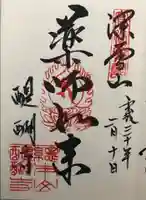 深雪山
平成三十年
二月十日
薬師如来
醍醐寺